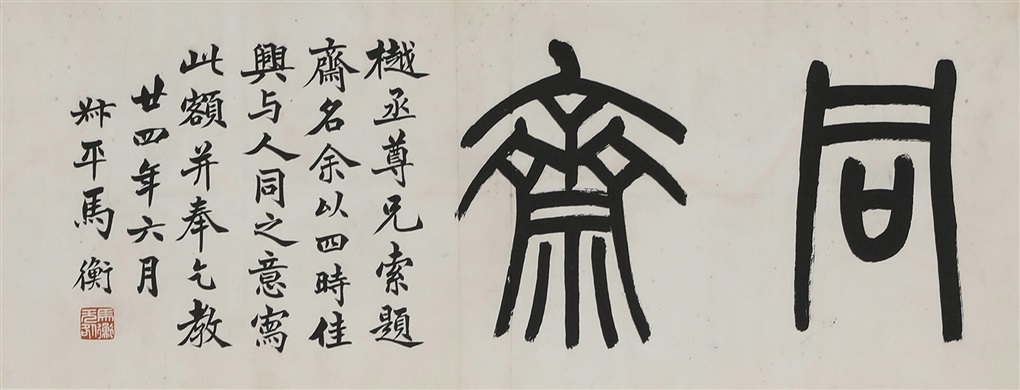 同齋
樾丞尊兄索題
齋名余以四時佳
興与人同之意寫
此額并奉乞教
廿四年六月
叔平馬衡